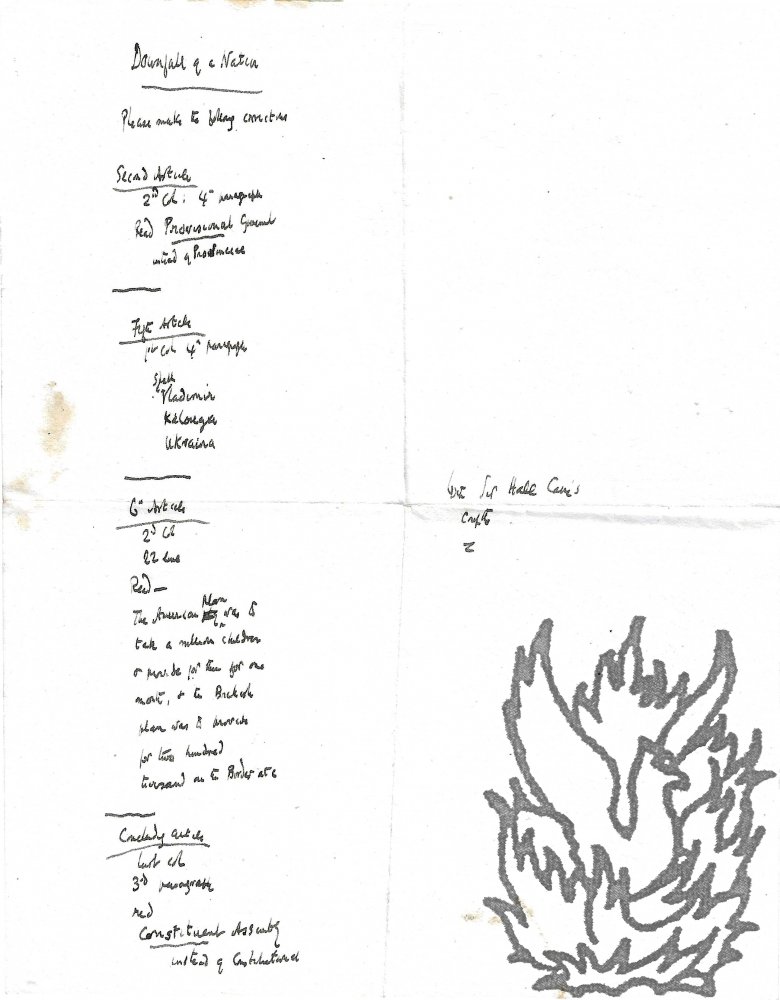 Downfall of a Nation
Please make the following corrections
Second Article
2nd Col: 4th paragraph
Read Provisional Government
instead of Provinces
Article
1st Col 4th paragraph
Spell
Vladimir
Kalouga
Ukraina
6th Article
2d Col
22 line
Read—
The American plan was to
take a million children
& provide for them for one
month, & the British
plan was to provide
for two hundred
thousand on the Border etc
Concluding article
last col
3rd paragraph
read
Constituent Assembly
instead of Constitutional
Sir Hall Caine's